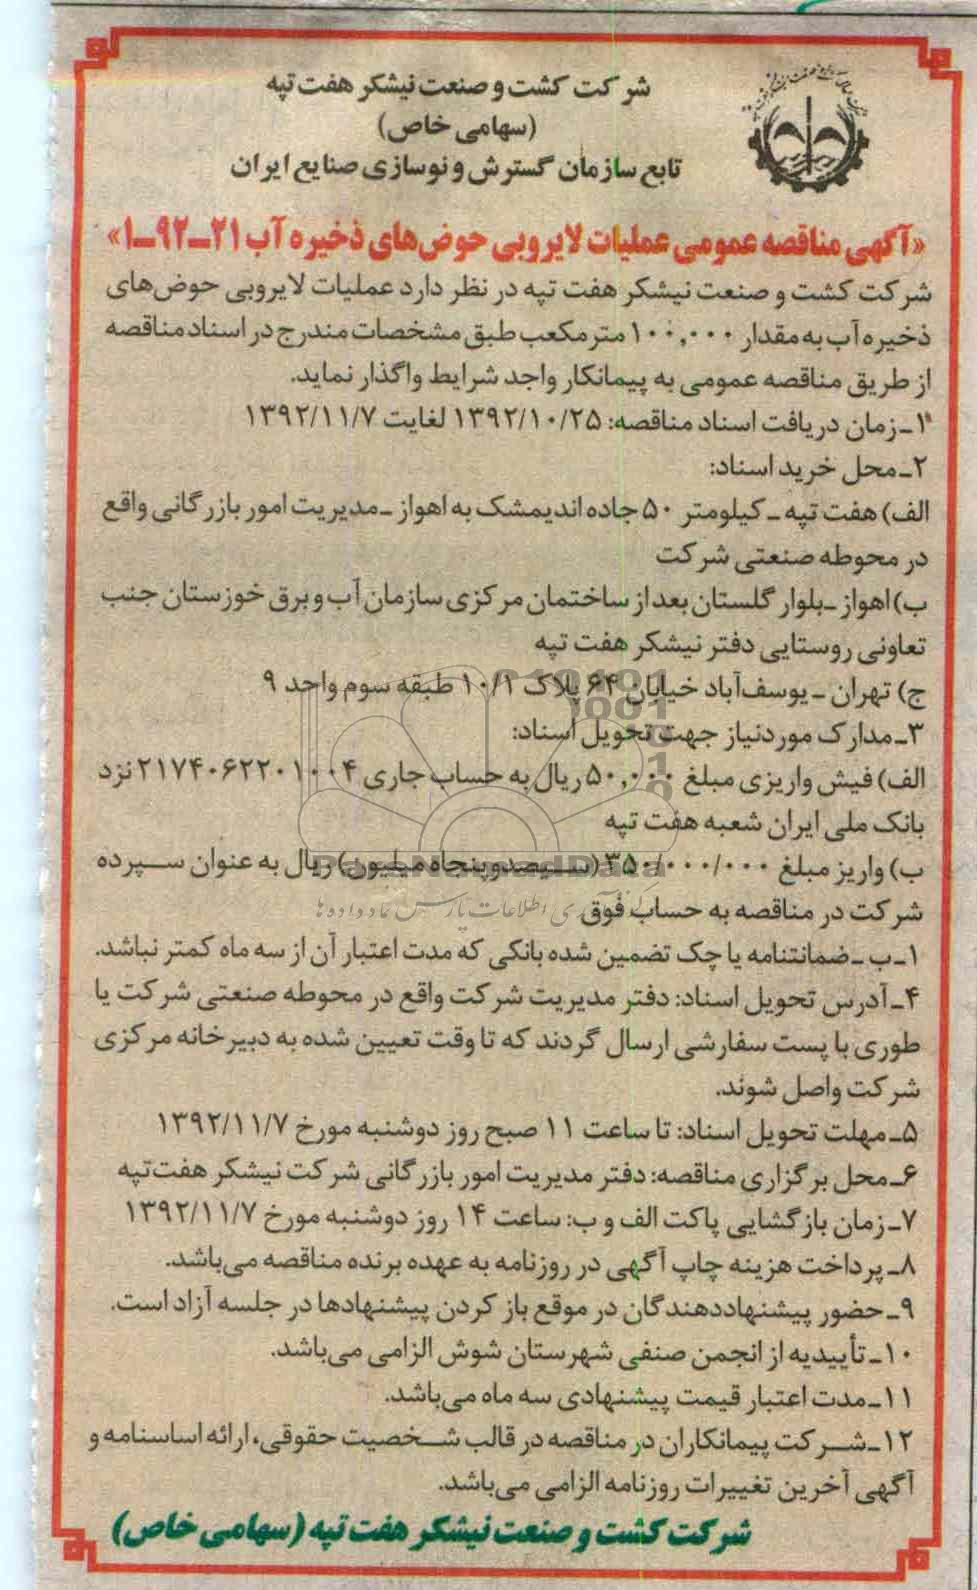 شرکت کشت و صنعت نیشکر هفت تپه
(سهامی خاص)
تابع سازمان گسترش و نوسازی صنایع ایران
«آگهی مناقصه عمومی عملیات لایروبی حوض‌های ذخیره آب ۲۱ـ۹۲ـ۱»
شرکت کشت و صنعت نیشکر هفت تپه در نظر دارد عملیات لایروبی حوض‌های
ذخیره آب به مقدار ۱۰۰,۰۰۰ مترمکعب طبق مشخصات مندرج در اسناد مناقصه
از طریق مناقصه عمومی به پیمانکار واجد شرایط واگذار نماید.
۱ـ زمان دریافت اسناد مناقصه: ۱۳۹۲/۱۰/۲۵ لغایت ۱۳۹۲/۱۱/۷
۲ـ محل خرید اسناد:
الف) هفت تپه ـ کیلومتر ۵۰ جاده اندیمشک به اهواز ـ مدیریت امور بازرگانی واقع
در محوطه صنعتی شرکت
ب) اهواز ـ بلوار گلستان بعد از ساختمان مرکزی سازمان آب و برق خوزستان جنب
تعاونی روستایی دفتر نیشکر هفت تپه
ج) تهران ـ یوسف‌آباد خیابان ۶۴ پلاک ۱۰/۱ طبقه سوم واحد ۹
۳ـ مدارک موردنیاز جهت تحویل اسناد:
الف) فیش واریزی مبلغ ۵۰,۰۰۰ ریال به حساب جاری ۲۱۷۴۰۶۲۲۰۱۰۰۴ نزد
بانک ملی ایران شعبه هفت تپه
ب) واریز مبلغ ۳۵۰/۰۰۰/۰۰۰ (سیصدوپنجاه میلیون) ریال به عنوان سپرده
شرکت در مناقصه به حساب فوق
۱ـ ب ـ ضمانتنامه یا چک تضمین شده بانکی که مدت اعتبار آن از سه ماه کمتر نباشد.
۴ـ آدرس تحویل اسناد: دفتر مدیریت شرکت واقع در محوطه صنعتی شرکت یا
طوری با پست سفارشی ارسال گردند که تا وقت تعیین شده به دبیرخانه مرکزی
شرکت واصل شوند.
۵ـ مهلت تحویل اسناد: تا ساعت ۱۱ صبح روز دوشنبه مورخ ۱۳۹۲/۱۱/۷
۶ـ محل برگزاری مناقصه: دفتر مدیریت امور بازرگانی شرکت نیشکر هفت‌تپه
۷ـ زمان بازگشایی پاکت الف و ب: ساعت ۱۴ روز دوشنبه مورخ ۱۳۹۲/۱۱/۷
۸ـ پرداخت هزینه چاپ آگهی در روزنامه به عهده برنده مناقصه می‌باشد.
۹ـ حضور پیشنهاددهندگان در موقع باز کردن پیشنهادها در جلسه آزاد است.
۱۰ـ تأییدیه از انجمن صنفی شهرستان شوش الزامی می‌باشد.
۱۱ـ مدت اعتبار قیمت پیشنهادی سه ماه می‌باشد.
۱۲ـ شرکت پیمانکاران در مناقصه در قالب شخصیت حقوقی، ارائه اساسنامه و
آگهی آخرین تغییرات روزنامه الزامی می‌باشد.
شرکت کشت و صنعت نیشکر هفت تپه (سهامی خاص)